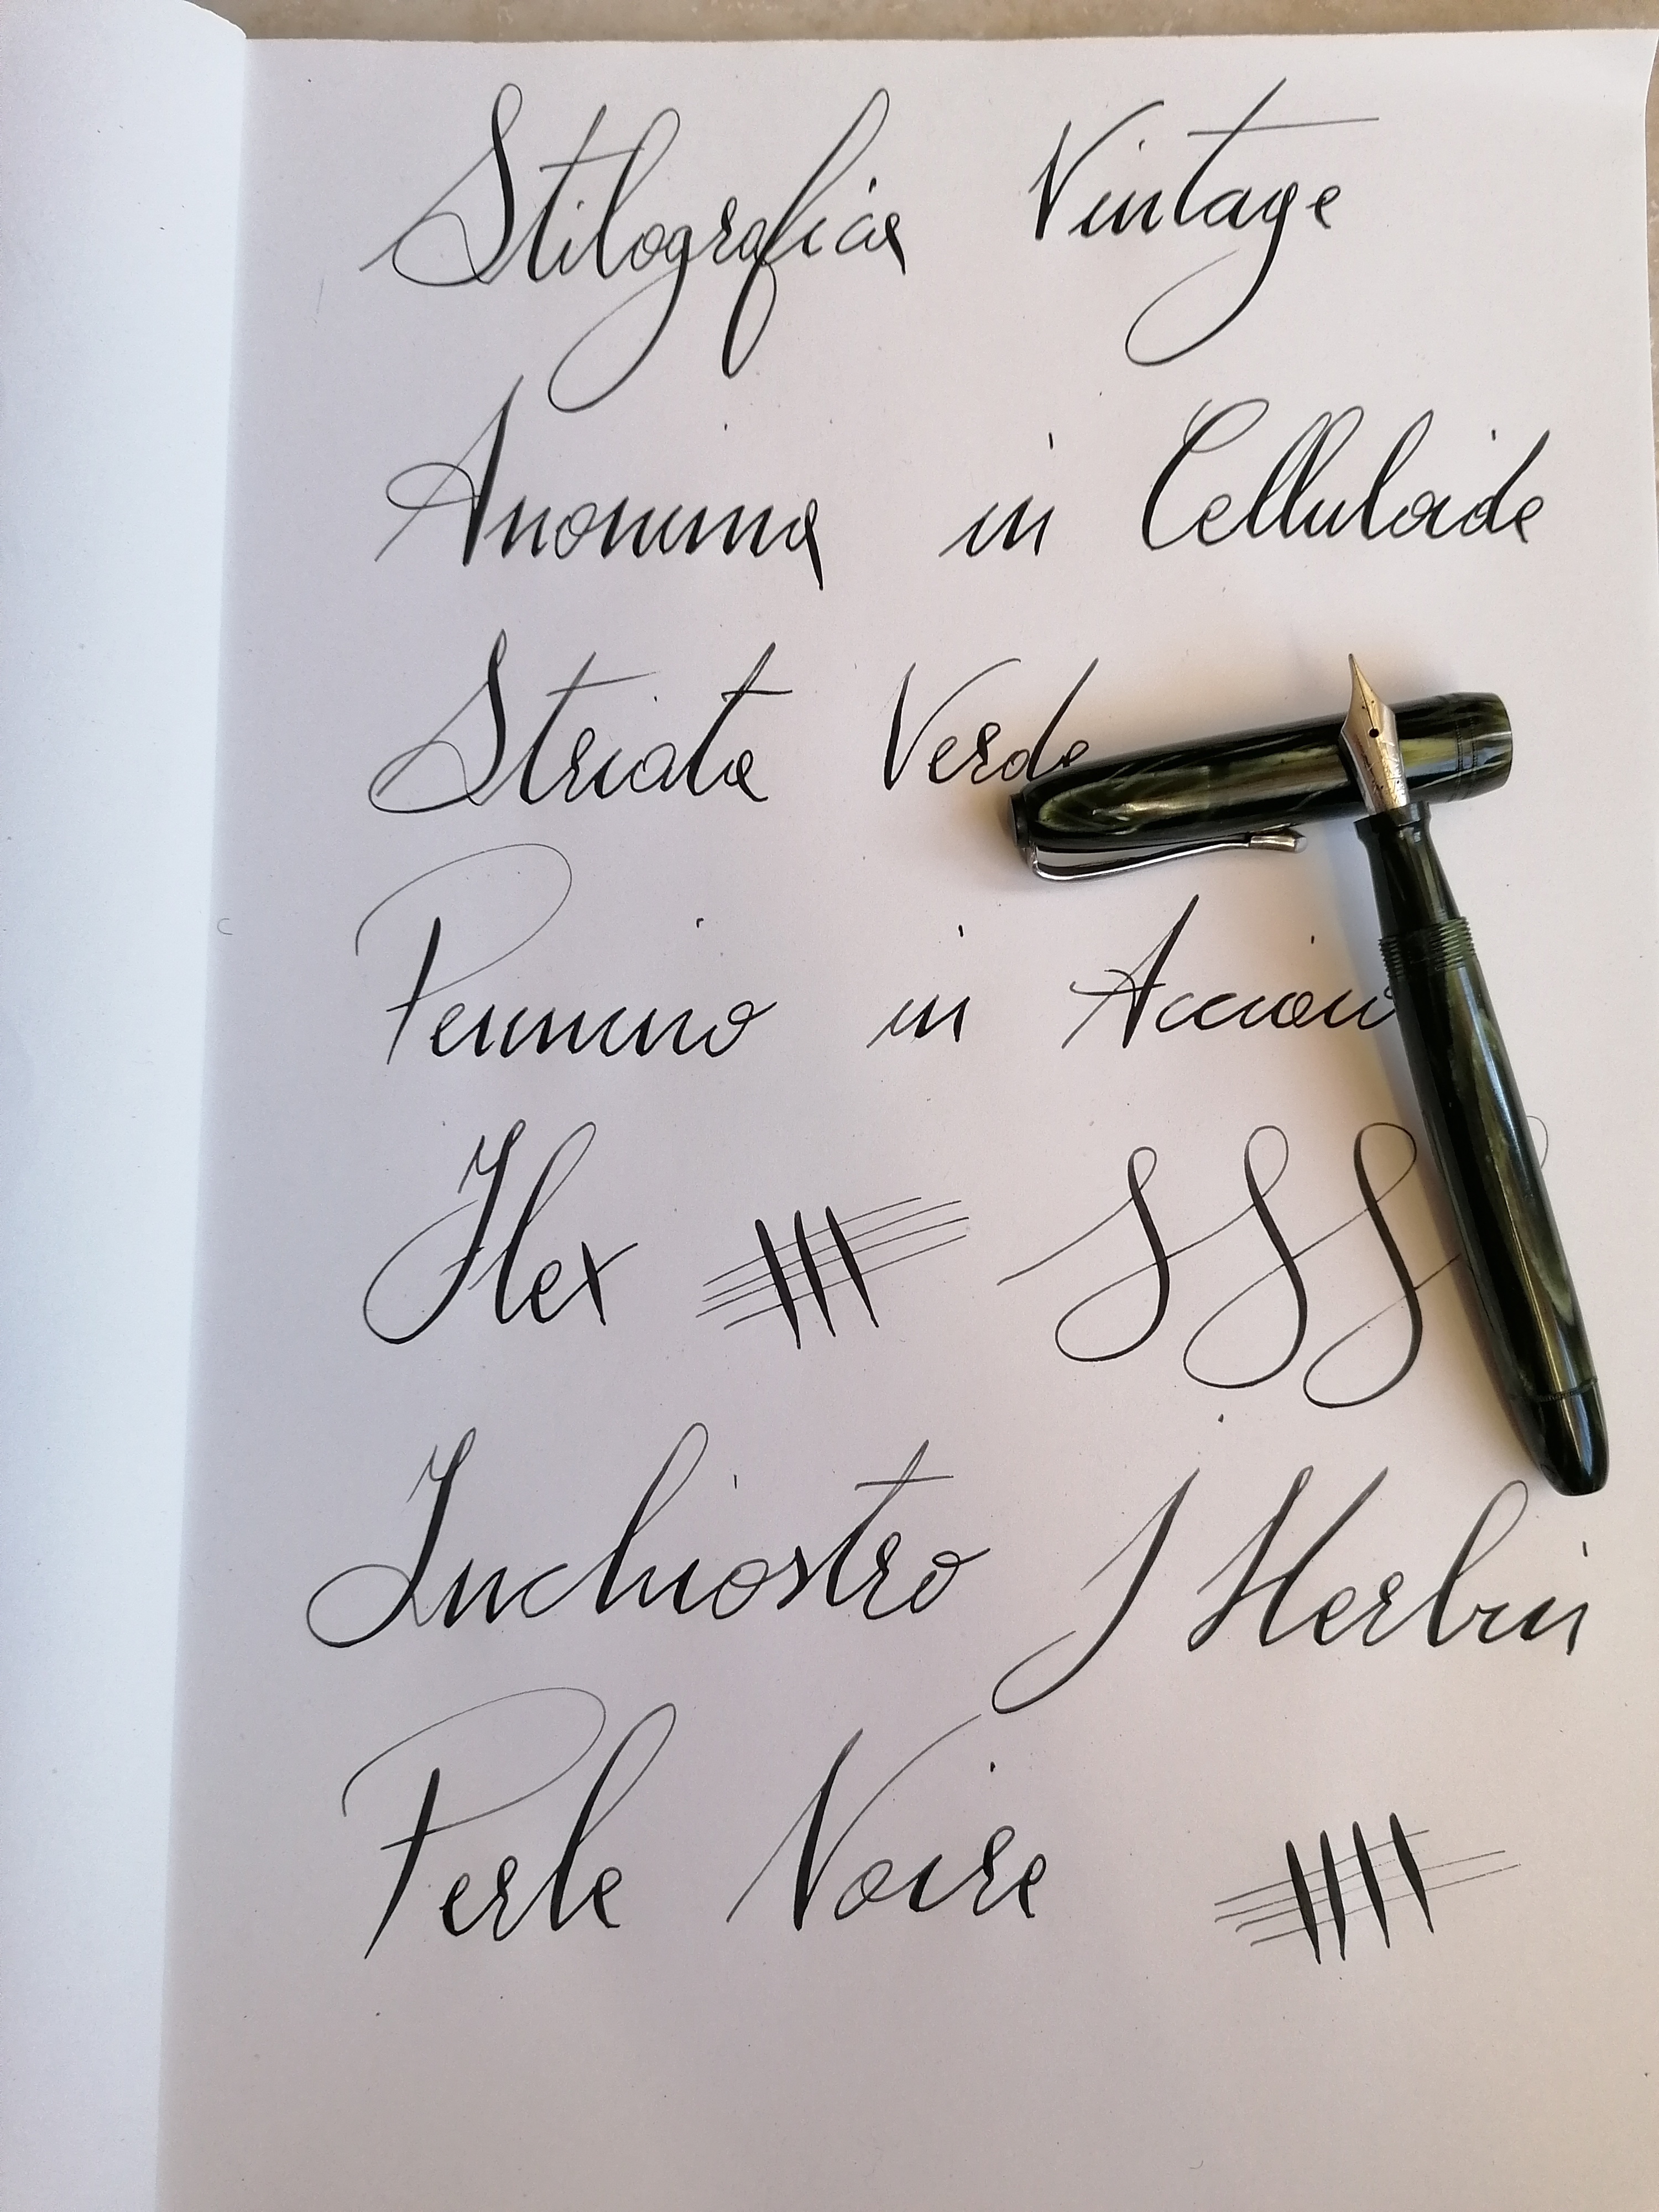 Stilografica Vintage
Anonima in Celluloide
Striata Verde
Pennino in Acciaio
Flex
Inchiostro J Herbin
Perle Noire